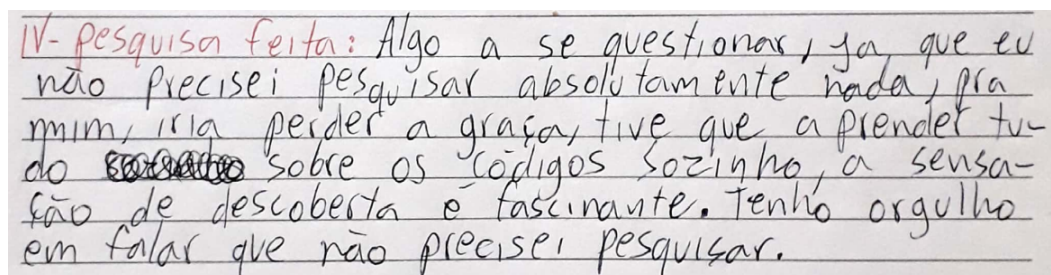 IV- Pesquisa feita: Algo a se questionar, ja que eu
não precisei pesquisar absolutamente nada, pra
mim, iria perder a graça, tive que aprender tu-
do sobre os códigos sozinho, a sensa-
ção de descoberta é fascinante. Tenho orgulho
em falar que não precisei pesquisar.